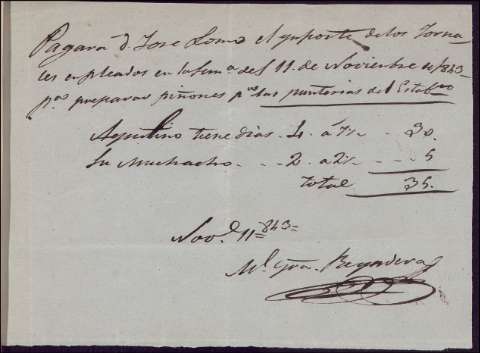 Pagara D. Jose Lomo el ymporte de los Jorna-
les empleados en la sem.a del 11 de Noviembre de /843
p.a preparar piñones p.a las punterias del Estab.to
Agustino tiene dias . 4 . á 7½ .. 30.
Su Muchacho . . . 2 . a 2½ . . . 5
Total 35.
Nov.e 11 = 843 =
M.l